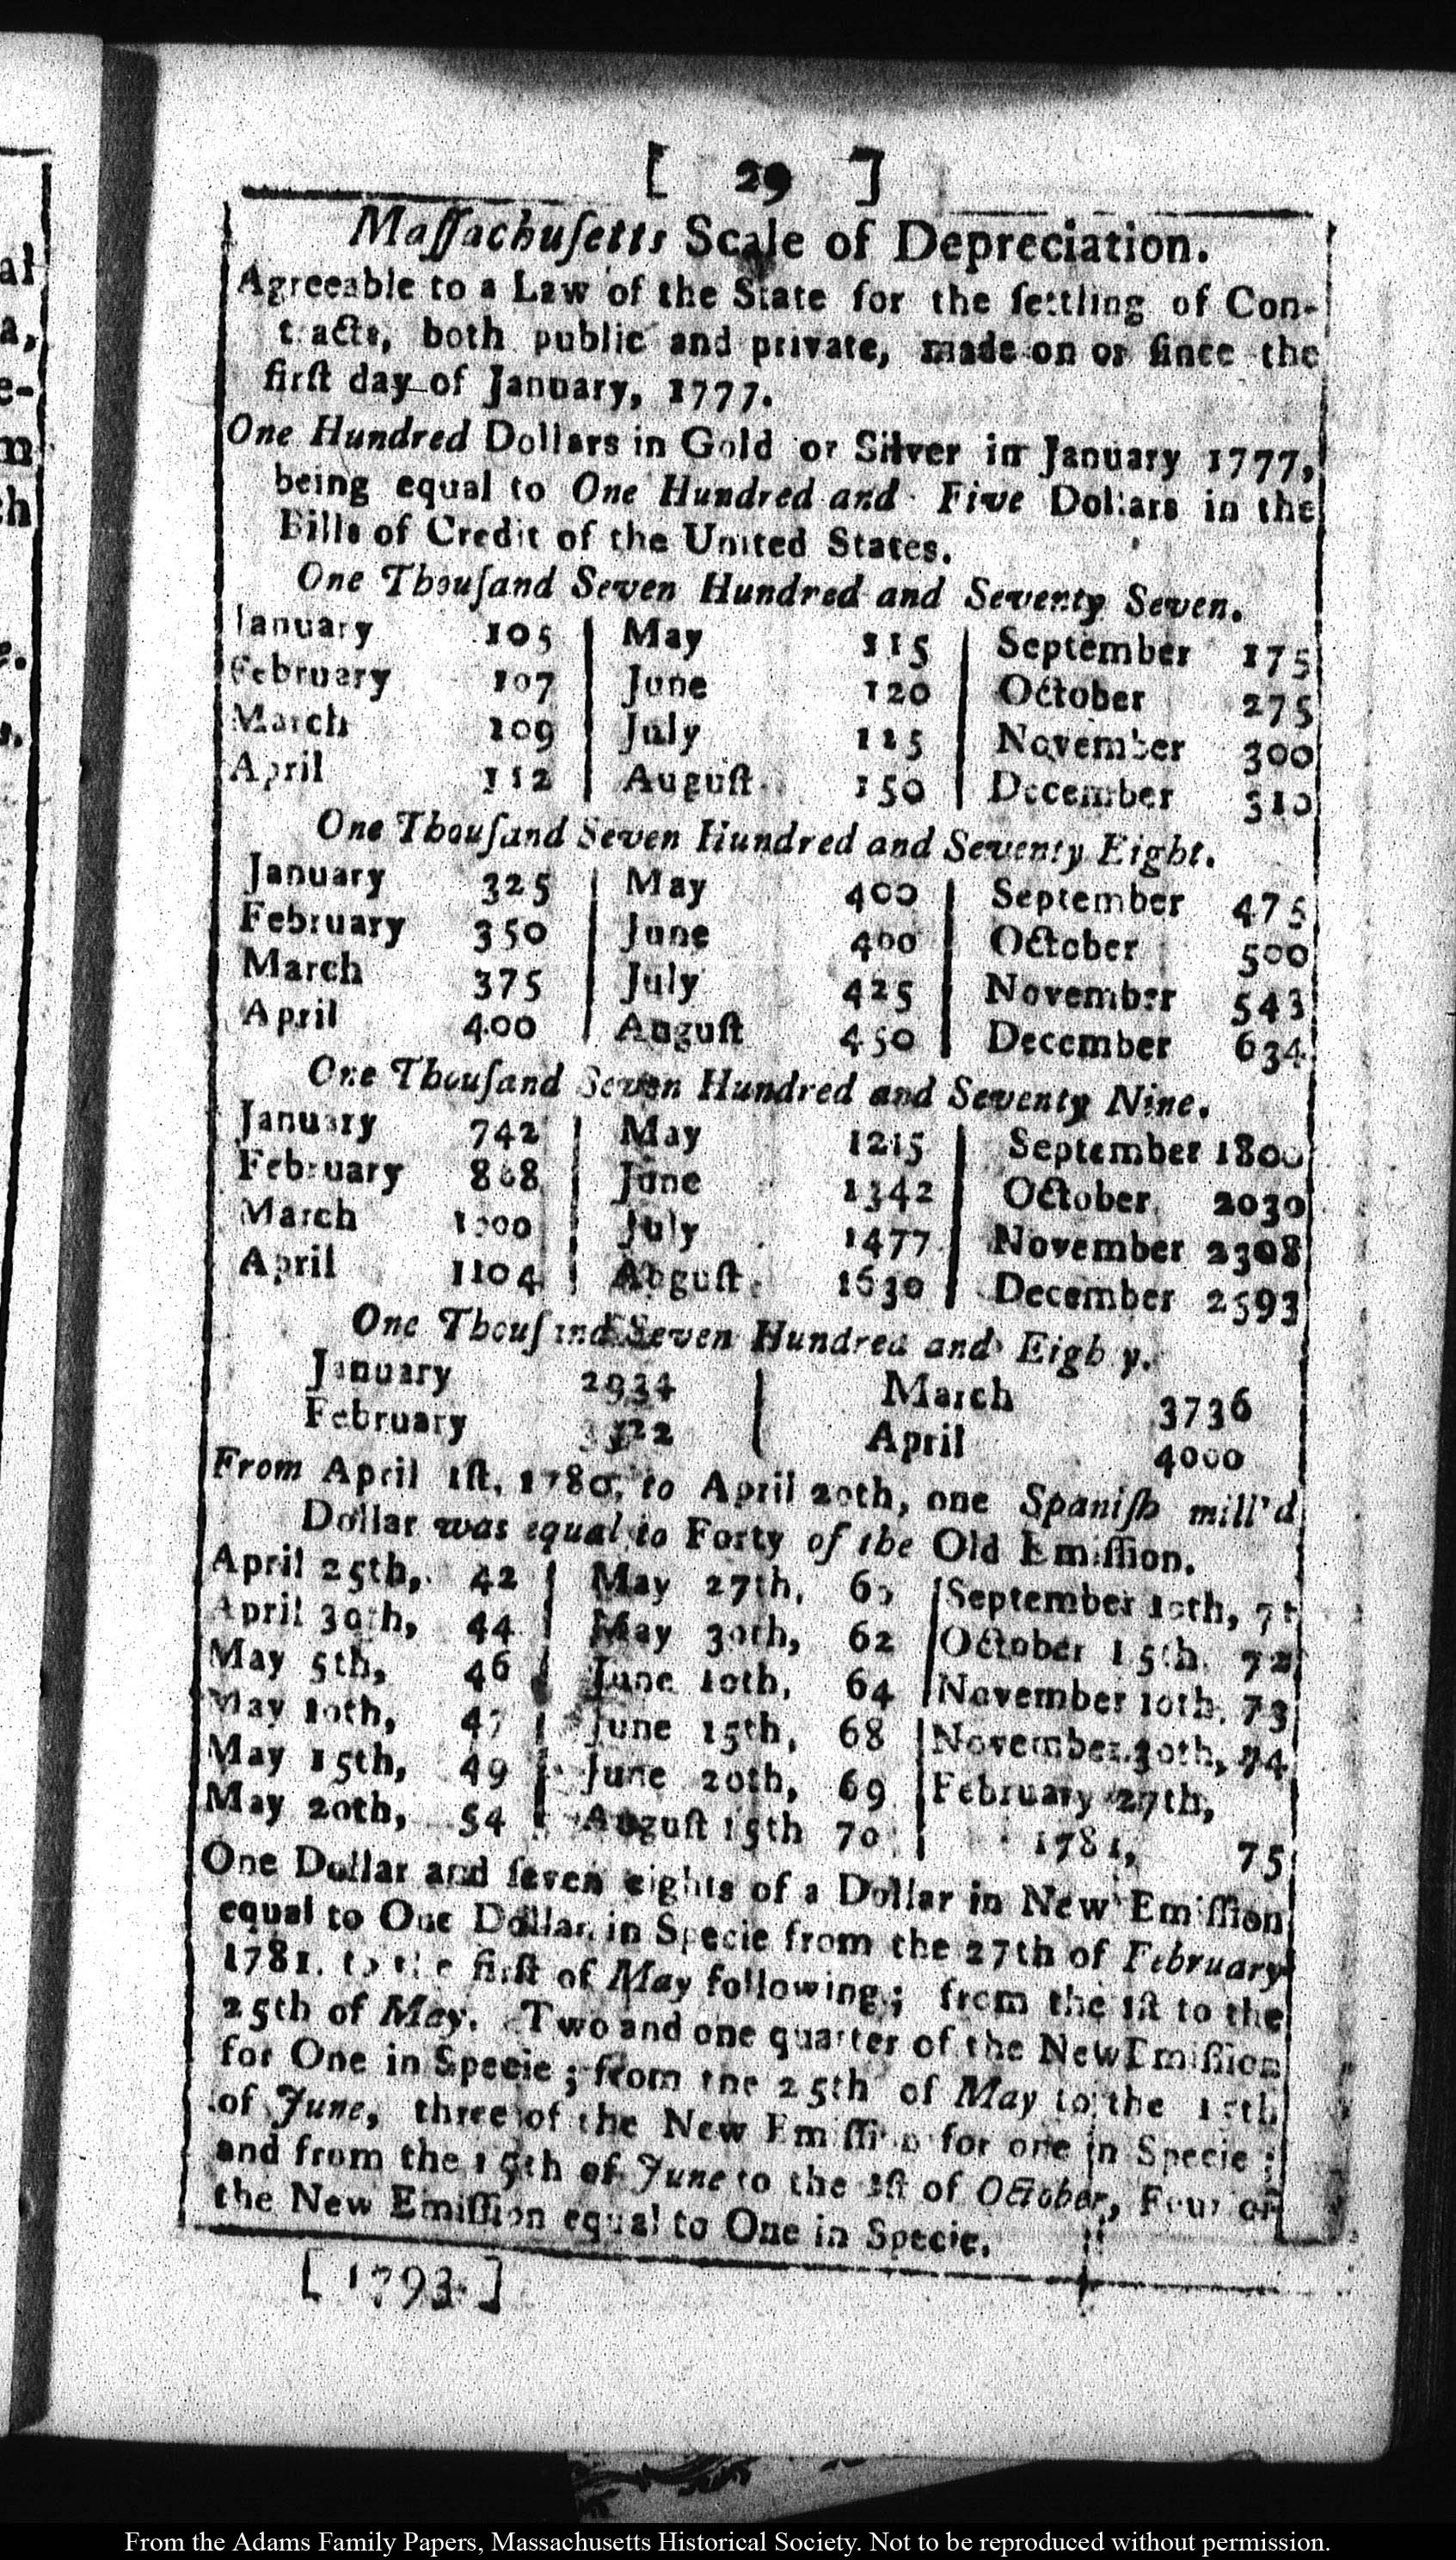 [ 29 ]
Maſſachuſetts Scale of Depreciation.
Agreeable to a Law of the State for the ſettling of Con-
tracts, both public and private, made on or ſince the
firſt day of January, 1777.
One Hundred Dollars in Gold or Silver in January 1777,
being equal to One Hundred and Five Dollars in the
Bills of Credit of the United States.
One Thouſand Seven Hundred and Seventy Seven.
January 105 May 115 September 175
February 107 June 120 October 275
March 109 July 125 November 300
April 112 Auguſt 150 December 310
One Thouſand Seven Hundred and Seventy Eight.
January 325 May 400 September 475
February 350 June 400 October 500
March 375 July 425 November 543
April 400 Auguſt 450 December 634
One Thouſand Seven Hundred and Seventy Nine.
January 742 May 1215 September 1800
February 868 June 1342 October 2030
March 1000 July 1477 November 2308
April 1104 Auguſt 1630 December 2593
One Thouſand Seven Hundred and Eighty.
January 2934 March 3736
February 3322 April 4000
From April 1ſt, 1780, to April 20th, one Spaniſh mill'd
Dollar was equal to Forty of the Old Emiſſion.
April 25th, 42 May 27th, 60 September 10th, 71
April 30th, 44 May 30th, 62 October 15th, 72
May 5th, 46 June 10th, 64 November 10th, 73
May 10th, 47 June 15th, 68 November 30th, 74
May 15th, 49 June 20th, 69 February 27th,
May 20th, 54 Auguſt 15th 70 1781, 75
One Dollar and ſeven eights of a Dollar in New Emiſſion
equal to One Dollar in Specie from the 27th of February
1781, to the firſt of May following; from the 1ſt to the
25th of May. Two and one quarter of the New Emiſſion
for One in Specie; from the 25th of May to the 15th
of June, three of the New Emiſſion for one in Specie;
and from the 15th of June to the 1ſt of October, Four of
the New Emiſſion equal to One in Specie.
[ 1793. ]
From the Adams Family Papers, Massachusetts Historical Society. Not to be reproduced without permission.